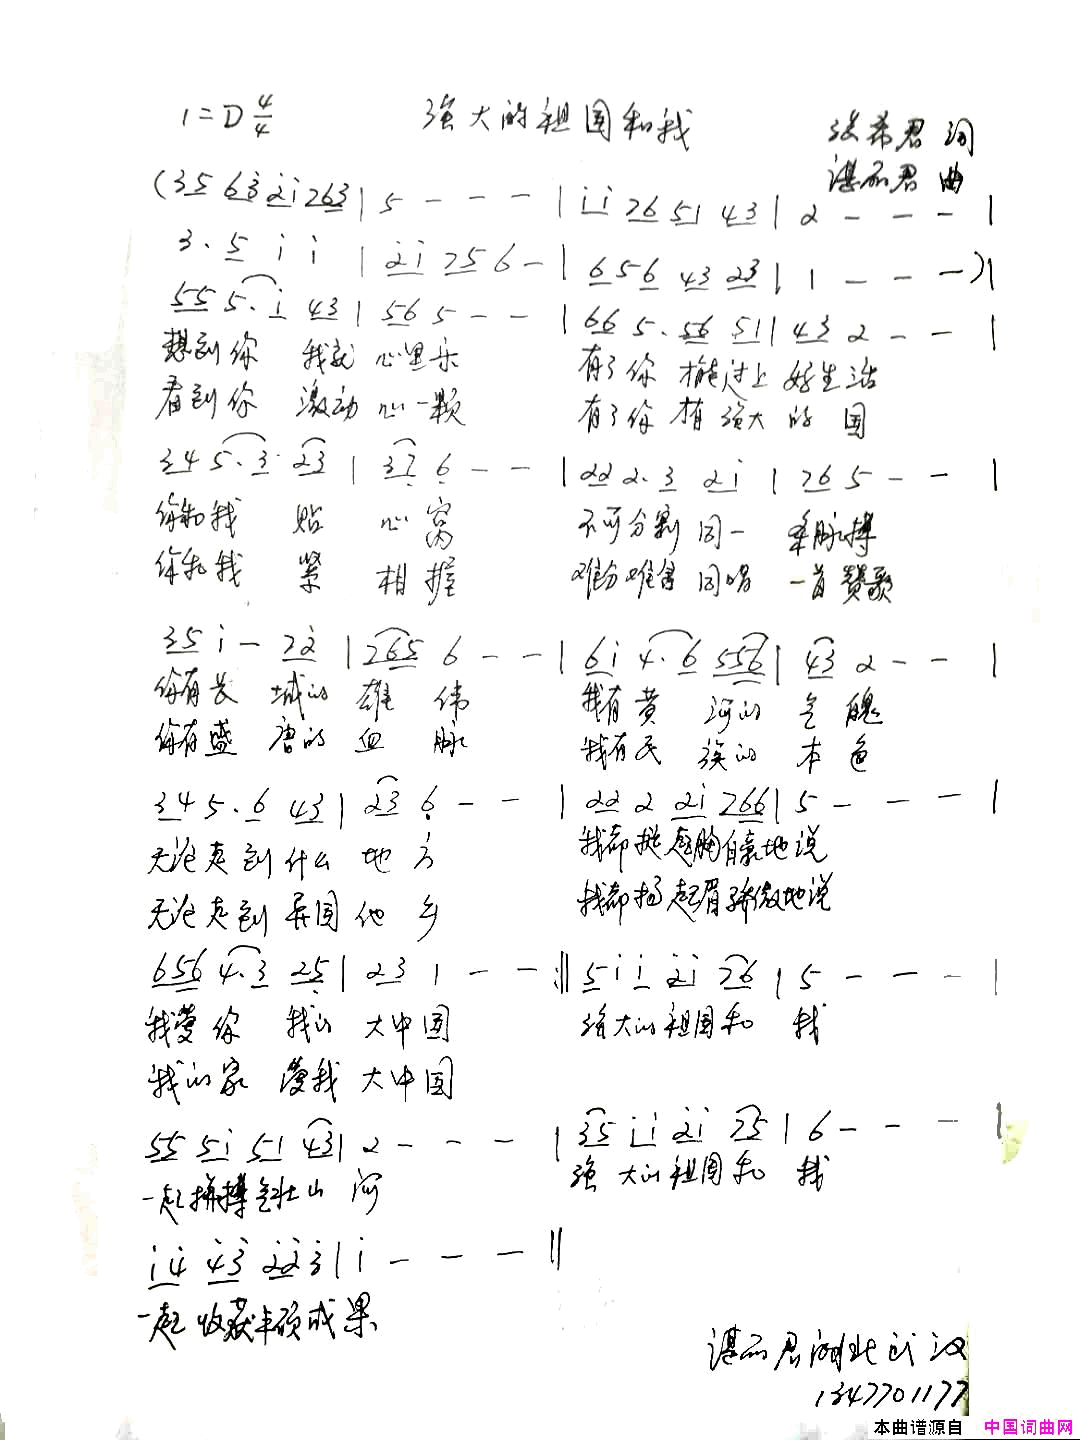 1=D 4/4 强大的祖国和我
张希君 词
湛丽君 曲
(35 63 21 263 | 5 - - - | i i 76 51 43 | 2 - - - |
3. 5 i i | 2i 75 6 - | 656 43 23 | 1 - - - ) |
55 5. i 43 | 56 5 - - | 66 5. 56 51 | 43 2 - - |
想到你 我就 心里乐 有了你 才能过上 好生活
看到你 激动 心一颗 有了你 才有强大 的 国
34 5. 3 23 | 37 6 - - | 22 2. 3 2i | 76 5 - - |
你和我 贴 心 窝 不可分割 同一 条脉搏
你和我 紧 相 握 难分难舍 同唱 一首赞歌
35 i - 72 | 765 6 - - | 6i 4. 6 556 | 43 2 - - |
你有长 城的 雄 伟 我有黄 河的 气 魄
你有盛 唐的 血 脉 我有民 族的 本 色
34 5. 6 43 | 23 6 - - | 22 2 2i 766 | 5 - - - |
无论走到什么 地 方 我都挺起胸自豪地说
无论走到异国他 乡 我都扬起眉骄傲地说
656 4. 3 25 | 23 1 - - :‖ 5i i 2i 76 | 5 - - - |
我爱你 我的 大中国 强大的祖国和 我
我的家 爱我 大中国
55 5i 51 43 | 2 - - - | 35 i i 2i 75 | 6 - - - |
一起拼搏气壮山 河 强 大的祖国和 我
i4 43 223 | i - - - ‖
一起收获丰硕成果
湛丽君湖北武汉
1347701177
本曲谱源自 中国词曲网